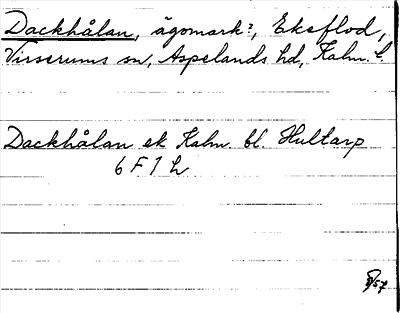 Dackhålan, ägomark?, Ekeflod,
Virserums sn, Aspelands hd, Kalm. l.
Dackhålan ek Kalm. bl. Hultarp
6 F 1 h